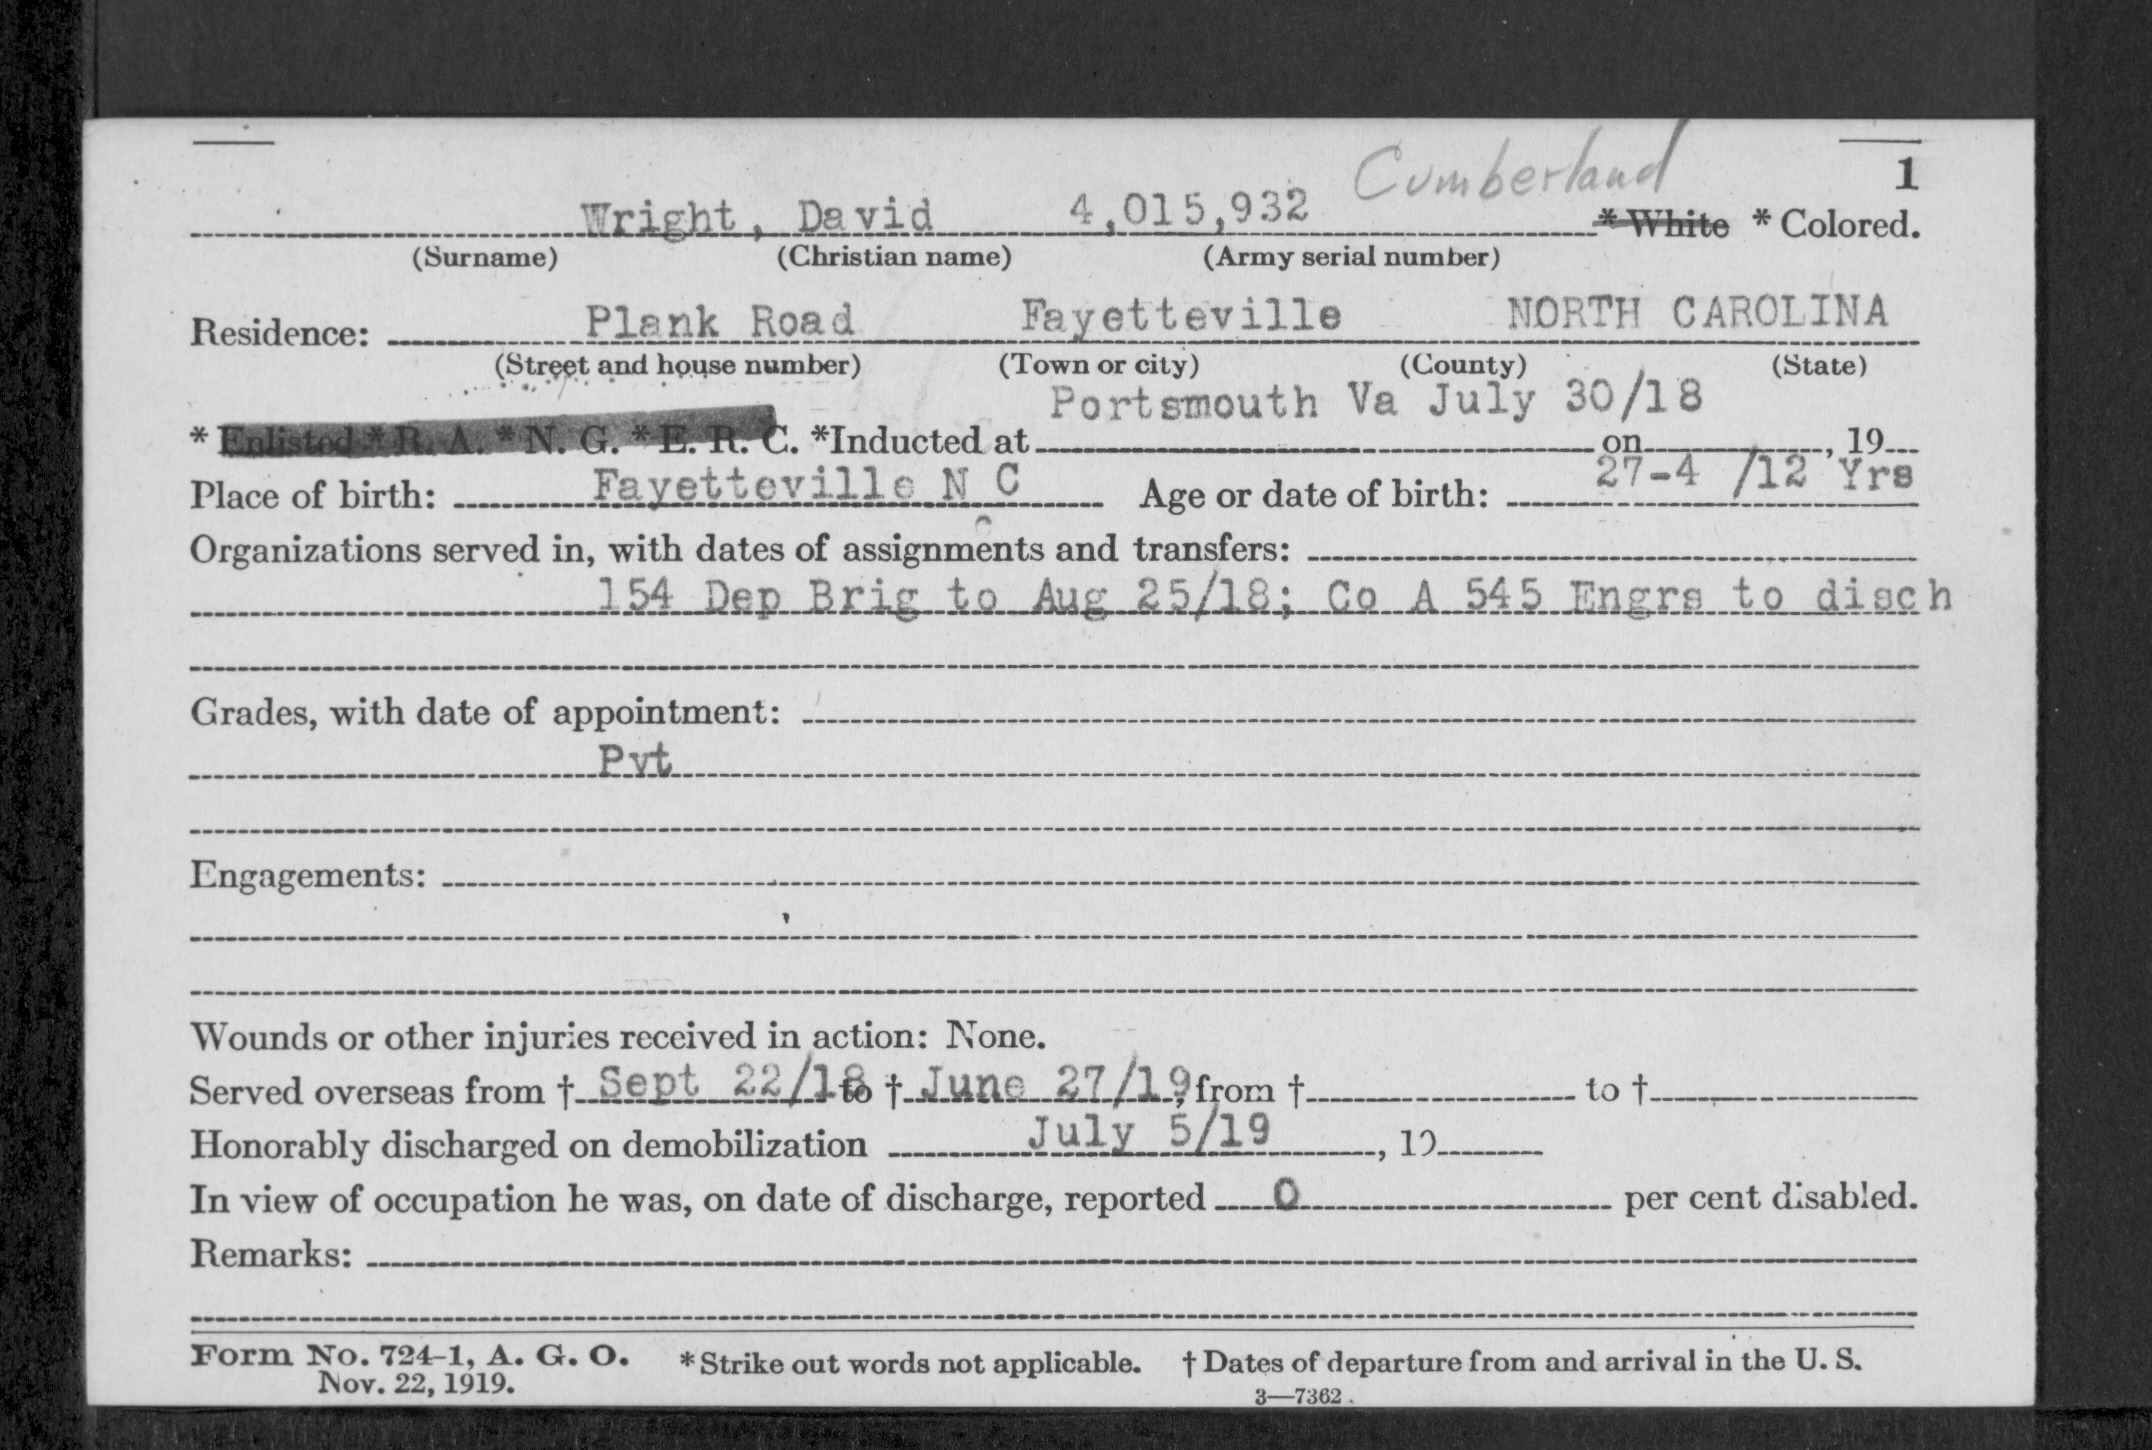 Cumberland
1
Wright, David 4,015,932 * White * Colored.
(Surname) (Christian name) (Army serial number)
Residence: Plank Road Fayetteville NORTH CAROLINA
(Street and house number) (Town or city) (County) (State)
Portsmouth Va July 30/18
* Enlisted * R. A. * N. G. * E. R. C. *Inducted at on , 19
Place of birth: Fayetteville N C Age or date of birth: 27-4 /12 Yrs
Organizations served in, with dates of assignments and transfers:
154 Dep Brig to Aug 25/18; Co A 545 Engrs to disch
Grades, with date of appointment:
Pvt
Engagements:
Wounds or other injuries received in action: None.
Served overseas from † Sept 22/18 to † June 27/19, from † to †
Honorably discharged on demobilization July 5/19, 19
In view of occupation he was, on date of discharge, reported 0 per cent disabled.
Remarks:
Form No. 724-1, A. G. O. * Strike out words not applicable. † Dates of departure from and arrival in the U. S.
Nov. 22, 1919.
3—7362.